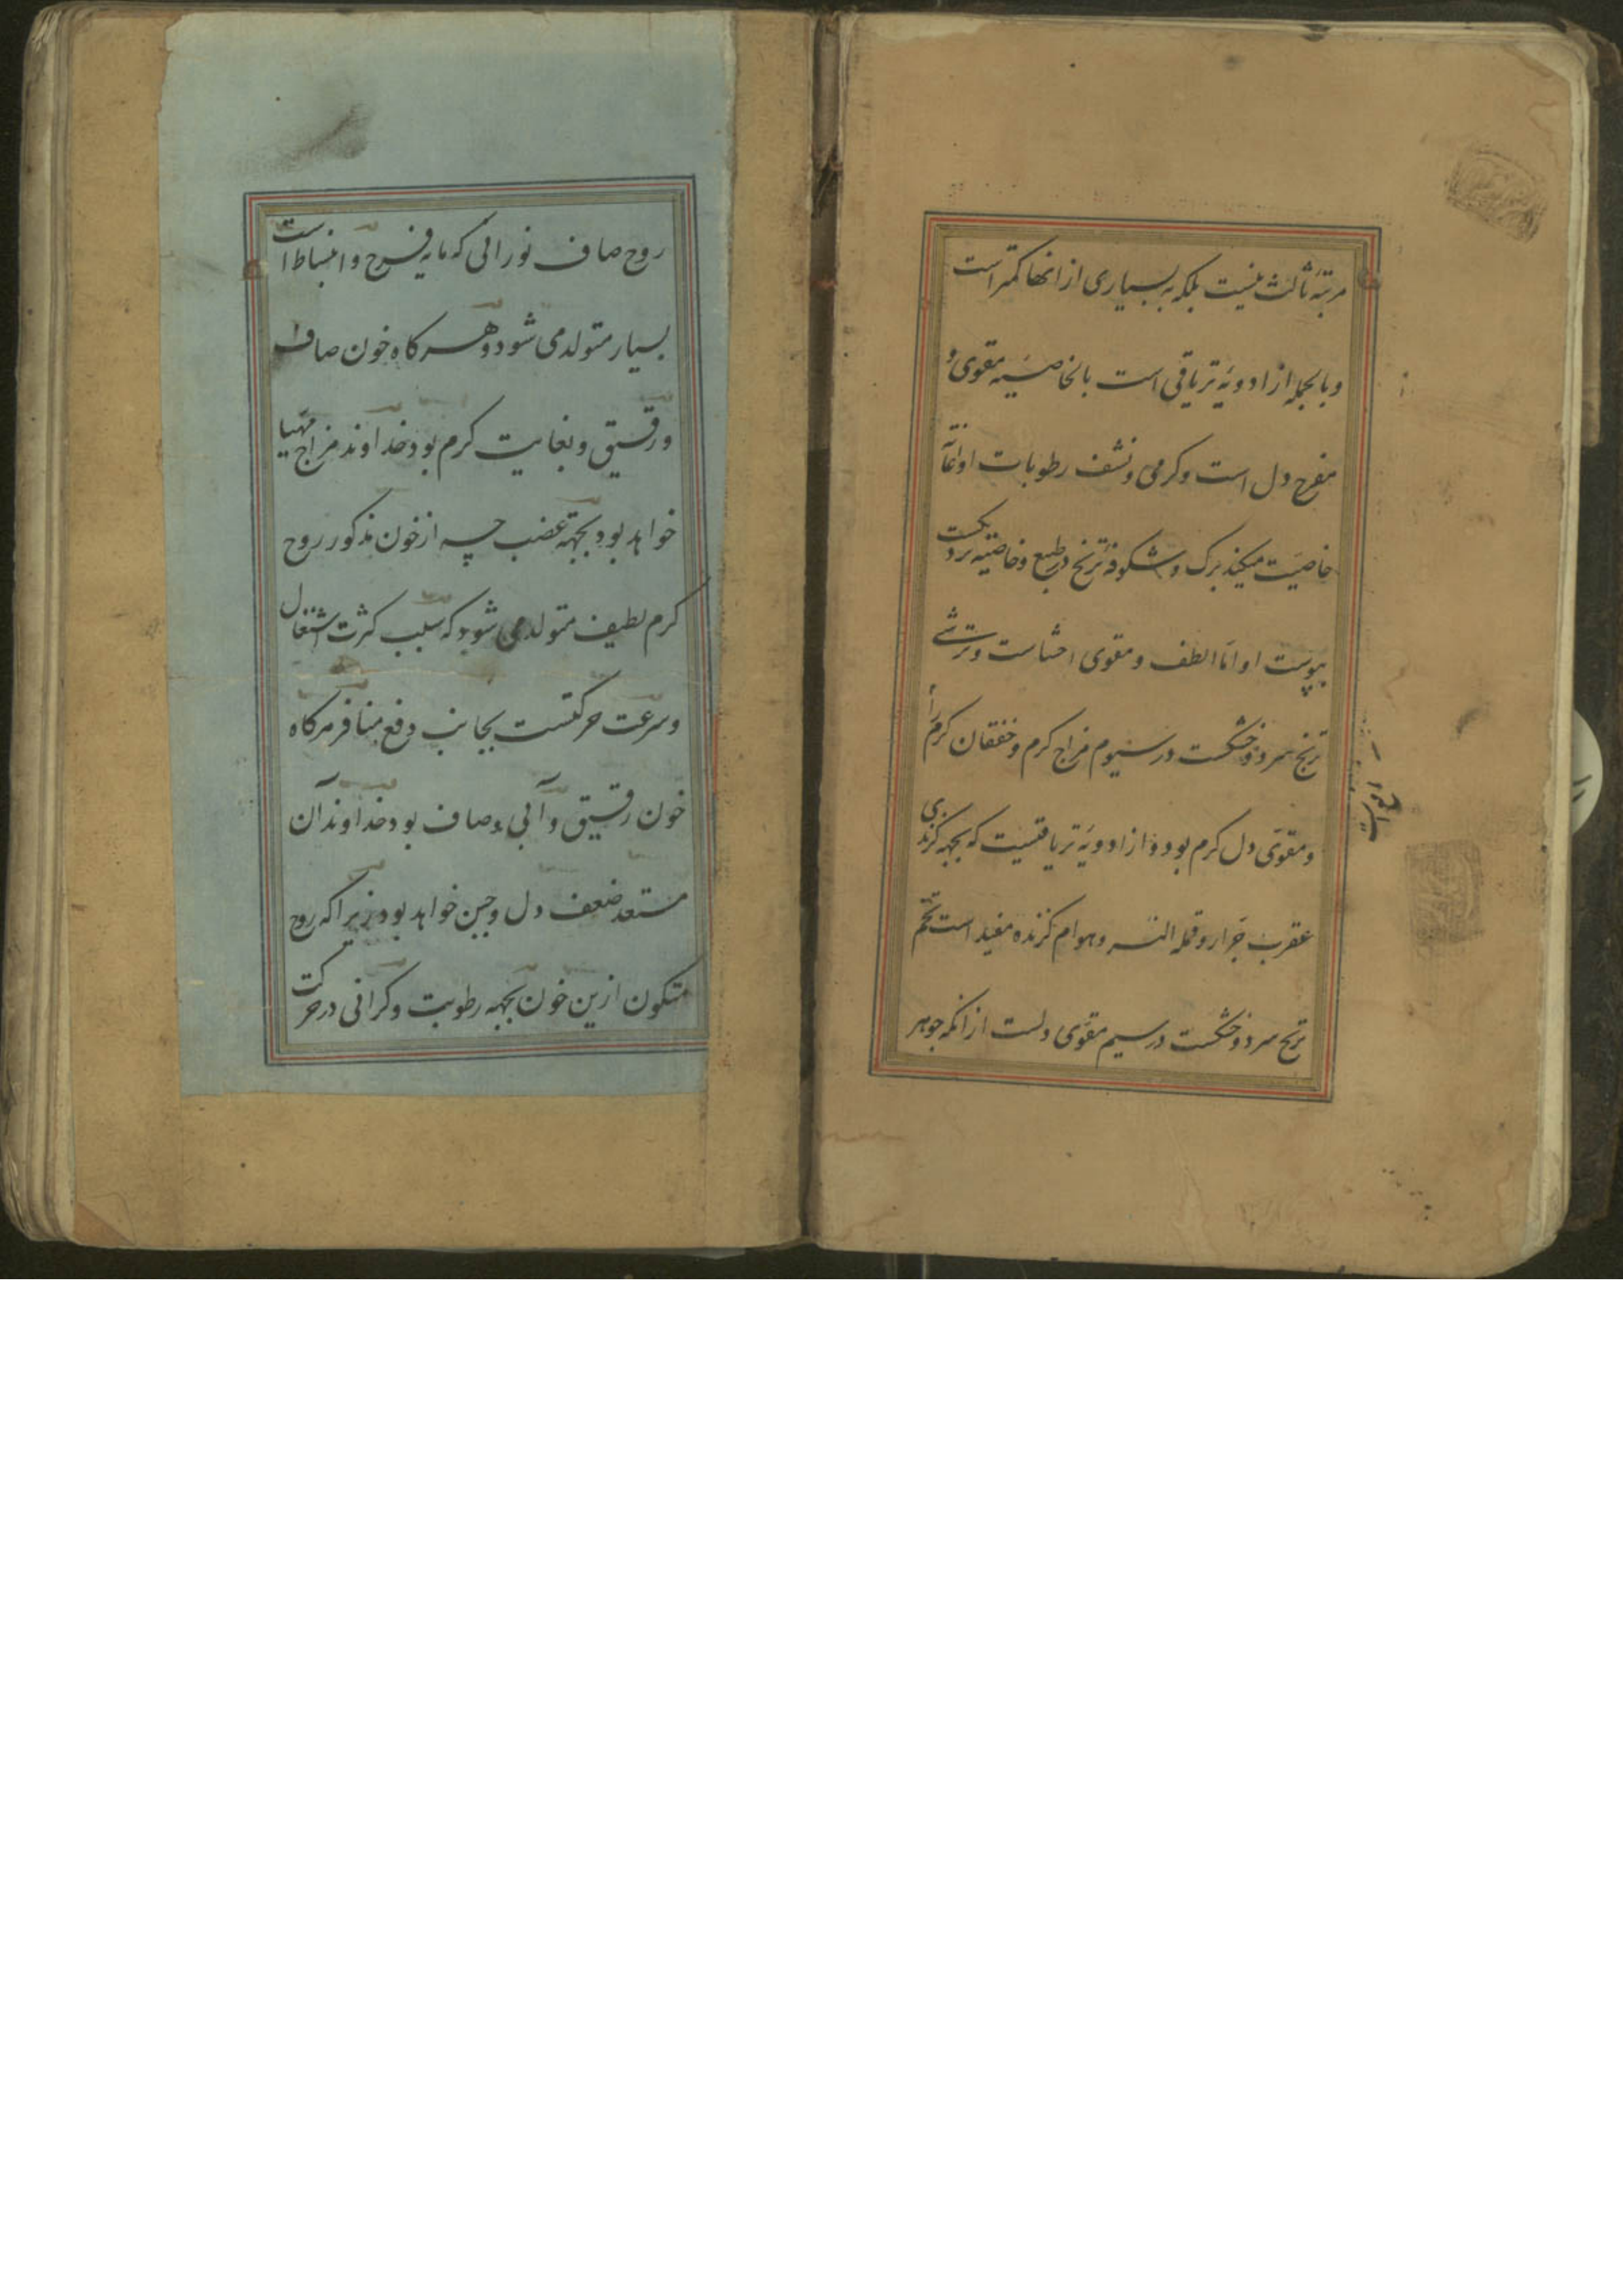 مرتبه ثالث نیست بلکه به بسیاری از انها کمتر است
و بالجمله از ادویه تریاقی است بالخاصیه مقوی و
مفرح دل است و کرمی و نشف رطوبات او اعانت
خاصیت میکند برک و شکوفه ترنج در طبع و خاصیه نزدیکست
بپوست او اما الطف و مقوی احشاست و ترشی
ترنج سرد و خشکست در سیوم مزاج کرم و خفقان کرم را
و مقوی دل کرم بود و از ادویه تریاقیست که بجهه کزندی
عقرب جرار و قمله النسر و هوام کزنده مفید است تخم
ترنج سرد و خشکست در سیم مقوی دلست از انکه جوهر
روح صاف نورانی که مایه فرح و انبساط است
بسیار متولد می شود و هر کاه خون صاف
و رقیق و بغایت کرم بود خداوند مزاج مهیا
خواهد بود بجهه غضب چه از خون مذکور روح
کرم لطیف متولد می شود که سبب کثرت اشتغال
و سرعت حرکتست بجانب دفع منافر هر کاه
خون رقیق و آبی و صاف بود خداوند آن
مستعد ضعف دل و جبن خواهد بود زیرا که روح
متکون ازین خون بجهه رطوبت و کرانی در حرکت